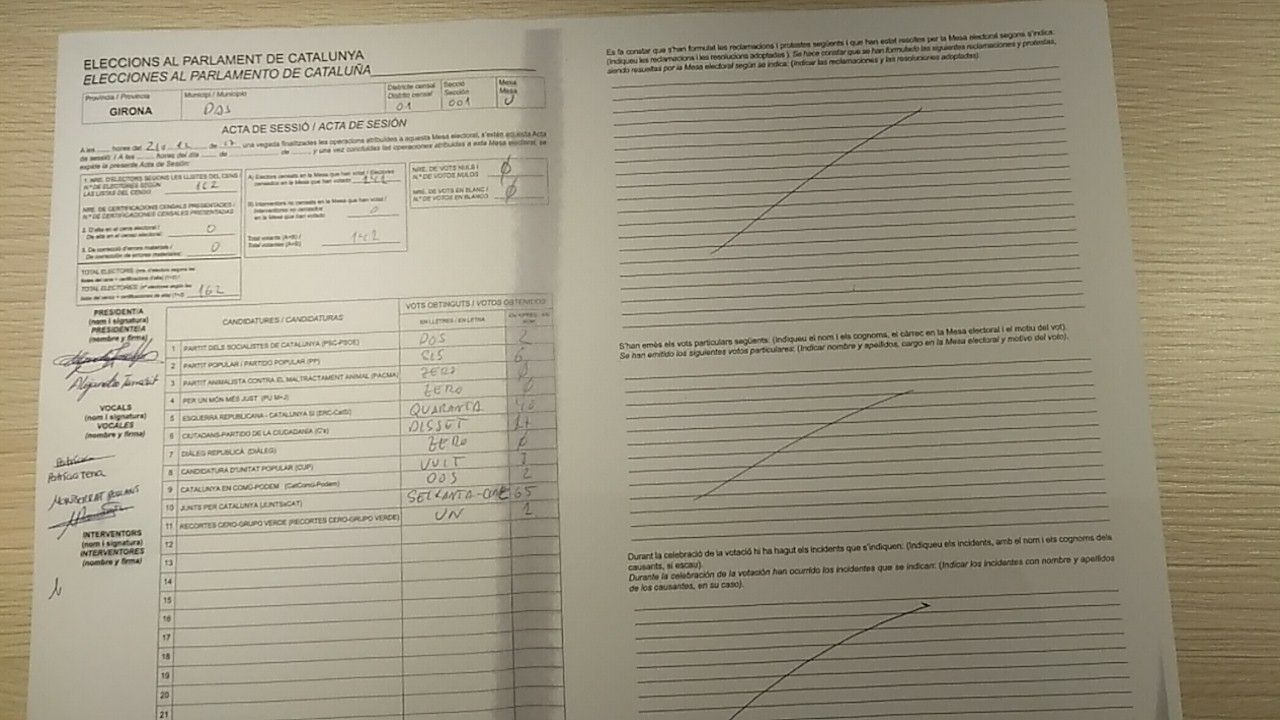 ELECCIONS AL PARLAMENT DE CATALUNYA
ELECCIONES AL PARLAMENTO DE CATALUÑA
Província / Provincia
Municipi / Municipio
Districte censal
Distrito censal
Secció
Sección
Mesa
Mesa
GIRONA
DAS
01
001
U
ACTA DE SESSIÓ / ACTA DE SESIÓN
A les hores del de de 17, una vegada finalitzades les operacions atribuïdes a aquesta Mesa electoral, s'estén aquesta Acta
de sessió: / A las horas del día de de y una vez concluidas las operaciones atribuidas a esta Mesa electoral, se
expide la presente Acta de Sesión:
1. NRE. D'ELECTORS SEGONS LES LLISTES DEL CENS
N.º DE ELECTORES SEGÚN
LAS LISTAS DEL CENSO
162
NRE. DE CERTIFICACIONS CENSALS PRESENTADES /
N.º DE CERTIFICACIONES CENSALES PRESENTADAS
2. D'alta en el cens electoral /
De alta en el censo electoral:
0
3. De correcció d'errors materials /
De corrección de errores materiales:
0
TOTAL ELECTORS (nre. d'electors segons les
llistes del cens + certificacions d'alta) (1+2) /
TOTAL ELECTORES (nº electores según las
listas del censo + certificaciones de alta) (1+2)
162
A) Electors censats en la Mesa que han votat / Electores
censados en la Mesa que han votado
B) Interventors no censats en la Mesa que han votat /
Interventores no censados
en la Mesa que han votado
0
Total votants (A+B) /
Total votantes (A+B)
142
NRE. DE VOTS NULS /
N.º DE VOTOS NULOS
Ø
NRE. DE VOTS EN BLANC /
N.º DE VOTOS EN BLANCO
Ø
PRESIDENT/A
(nom i signatura)
PRESIDENTE/A
(nombre y firma)
Alejandro
VOCALS
(nom i signatura)
VOCALES
(nombre y firma)
Patricia
Patricia Tena
MONTSERRAT
INTERVENTORS
(nom i signatura)
INTERVENTORES
(nombre y firma)
CANDIDATURES / CANDIDATURAS
VOTS OBTINGUTS / VOTOS OBTENIDOS
EN LLETRES / EN LETRA
1 PARTIT DELS SOCIALISTES DE CATALUNYA (PSC-PSOE) DOS 2
2 PARTIT POPULAR / PARTIDO POPULAR (PP) SIS 6
3 PARTIT ANIMALISTA CONTRA EL MALTRACTAMENT ANIMAL (PACMA) ZERO Ø
4 PER UN MÓN MÉS JUST (PUM+J) ZERO Ø
5 ESQUERRA REPUBLICANA - CATALUNYA SÍ (ERC-CatSí) QUARANTA 40
6 CIUTADANS-PARTIDO DE LA CIUDADANÍA (C's) DISSET 17
7 DIÀLEG REPUBLICÀ (DIÀLEG) ZERO Ø
8 CANDIDATURA D'UNITAT POPULAR (CUP) VUIT
9 CATALUNYA EN COMÚ-PODEM (CatComú-Podem) DOS 2
10 JUNTS PER CATALUNYA (JUNTSxCAT) 65
11 RECORTES CERO-GRUPO VERDE (RECORTES CERO-GRUPO VERDE) UN 1
12
13
14
15
16
17
18
19
20
21
Es fa constar que s'han formulat les reclamacions i protestes següents i que han estat resoltes per la Mesa electoral segons s'indica:
(Indiqueu les reclamacions i les resolucions adoptades). Se hace constar que se han formulado las siguientes reclamaciones y protestas,
siendo resueltas por la Mesa electoral según se indica: (Indicar las reclamaciones y las resoluciones adoptadas).
S'han emès els vots particulars següents: (Indiqueu el nom i els cognoms, el càrrec en la Mesa electoral i el motiu del vot).
Se han emitido los siguientes votos particulares: (Indicar nombre y apellidos, cargo en la Mesa electoral y motivo del voto).
Durant la celebració de la votació hi ha hagut els incidents que s'indiquen: (Indiqueu els incidents, amb el nom i els cognoms dels
causants, si escau).
Durante la celebración de la votación han ocurrido los incidentes que se indican: (Indicar los incidentes con nombre y apellidos
de los causantes, en su caso).